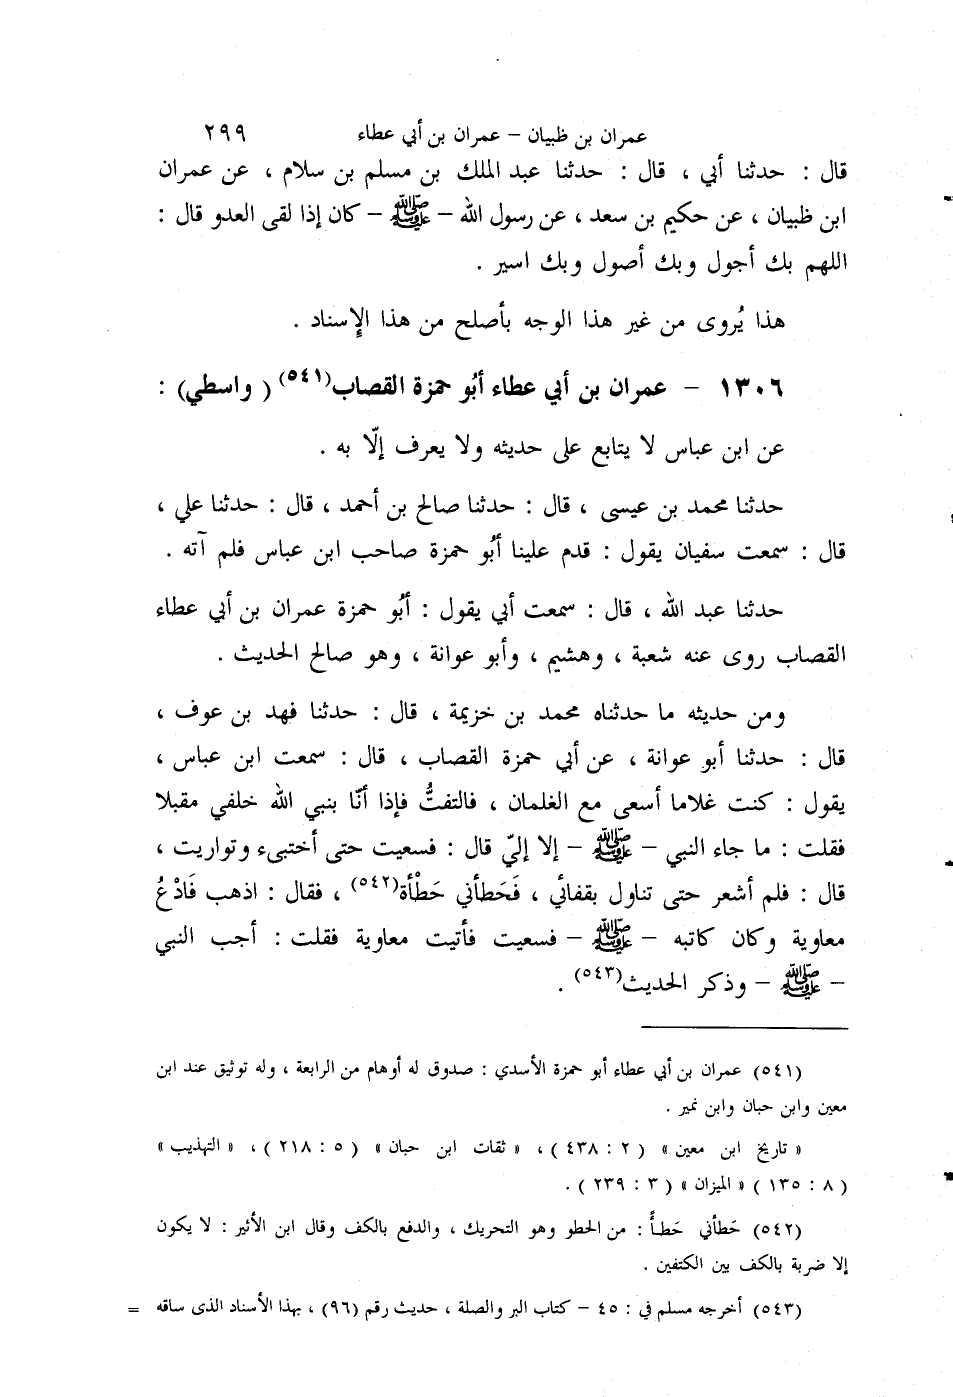 عمران بن ظبيان – عمران بن أبي عطاء ٢٩٩
قال : حدثنا أبي ، قال : حدثنا عبد الملك بن مسلم بن سلام ، عن عمران
ابن ظبيان ، عن حكيم بن سعد ، عن رسول الله – ﷺ – كان إذا لقى العدو قال :
اللهم بك أجول وبك أصول وبك اسير .
هذا يُروى من غير هذا الوجه بأصلح من هذا الإسناد .
١٣٠٦ – عمران بن أبي عطاء أبُو حمزة القصاب(٥٤١) ( واسطي) :
عن ابن عباس لا يتابع على حديثه ولا يعرف إلّا به .
حدثنا محمد بن عيسى ، قال : حدثنا صالح بن أحمد ، قال : حدثنا علي ،
قال : سمعت سفيان يقول : قدم علينا أبُو حمزة صاحب ابن عباس فلم آته .
حدثنا عبد الله ، قال : سمعت أبي يقول : أبُو حمزة عمران بن أبي عطاء
القصاب روى عنه شعبة ، وهشيم ، وأبو عوانة ، وهو صالح الحديث .
ومن حديثه ما حدثناه محمد بن خزيمة ، قال : حدثنا فهد بن عوف ،
قال : حدثنا أبو عوانة ، عن أبي حمزة القصاب ، قال : سمعت ابن عباس ،
يقول : كنت غلاما أسعى مع الغلمان ، فالتفتُّ فإذا أنّا بنبي الله خلفي مقبلا
فقلت : ما جاء النبي – ﷺ – إلا إليّ قال : فسعيت حتى أختبىء وتواريت ،
قال : فلم أشعر حتى تناول بقفائي ، فَحَطأني حَطْأة(٥٤٢) ، فقال : اذهب فَادْعُ
معاوية وكان كاتبه – ﷺ – فسعيت فأتيت معاوية فقلت : أجب النبي
– ﷺ – وذكر الحديث(٥٤٣) .
(٥٤١) عمران بن أبي عطاء أبو حمزة الأسدي : صدوق له أوهام من الرابعة ، وله توثيق عند ابن
معين وابن حبان وابن نمير .
« تاريخ ابن معين » ( ٢ : ٤٣٨ ) ، « ثقات ابن حبان » ( ٥ : ٢١٨ ) ، « التهذيب »
( ٨ : ١٣٥ ) « الميزان » ( ٣ : ٢٣٩ ) .
(٥٤٢) حَطأني حَطأً : من الحطو وهو التحريك ، والدفع بالكف وقال ابن الأثير : لا يكون
إلا ضربة بالكف بين الكتفين .
(٥٤٣) أخرجه مسلم في : ٤٥ – كتاب البر والصلة ، حديث رقم (٩٦) ، بهذا الأسناد الذى ساقه =